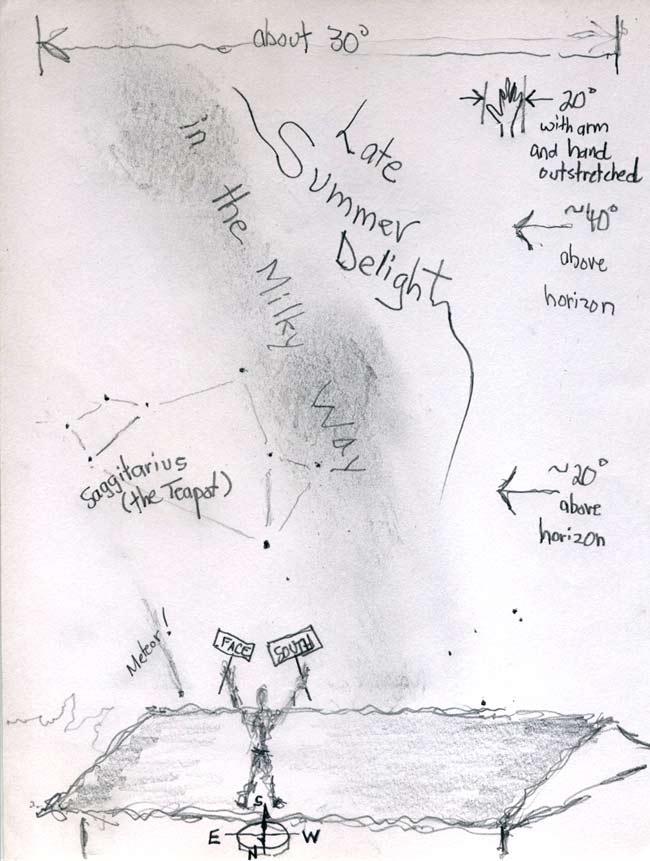 about 30°
20°
with arm
and hand
outstretched
Late
Summer
Delight
in the Milky Way
~40°
above
horizon
Saggitarius
(the Teapot)
~20°
above
horizon
Meteor!
FACE
SOUTH
S
E W
N